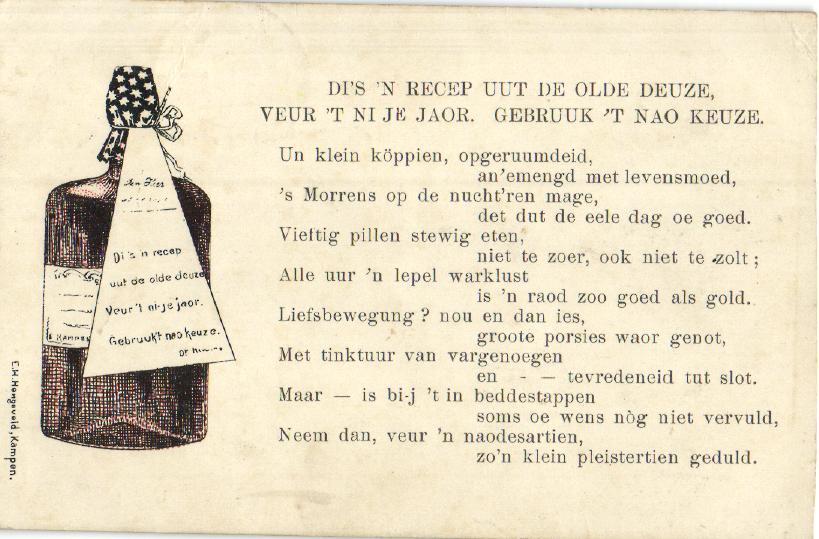 DI'S 'N RECEP UUT DE OLDE DEUZE,
VEUR 'T NI JE JAOR. GEBRUUK 'T NAO KEUZE.
Un klein köppien, opgeruumdeid,
an'emengd met levensmoed,
's Morrens op de nucht'ren mage,
det dut de eele dag oe goed.
Vieftig pillen stewig eten,
niet te zoer, ook niet te zolt;
Alle uur 'n lepel warklust
is 'n raod zoo goed als gold.
Liefsbewegung? nou en dan ies,
groote porsies waor genot,
Met tinktuur van vargenoegen
en - — tevredeneid tut slot.
Maar — is bi-j 't in beddestappen
soms oe wens nòg niet vervuld,
Neem dan, veur 'n naodesartien,
zo'n klein pleistertien geduld.
Di's 'n recep
uut de olde deuze
Veur 't ni-je jaor.
Gebruuk't nao keuze.
KAMPEN
E.H. Hengeveld, Kampen.